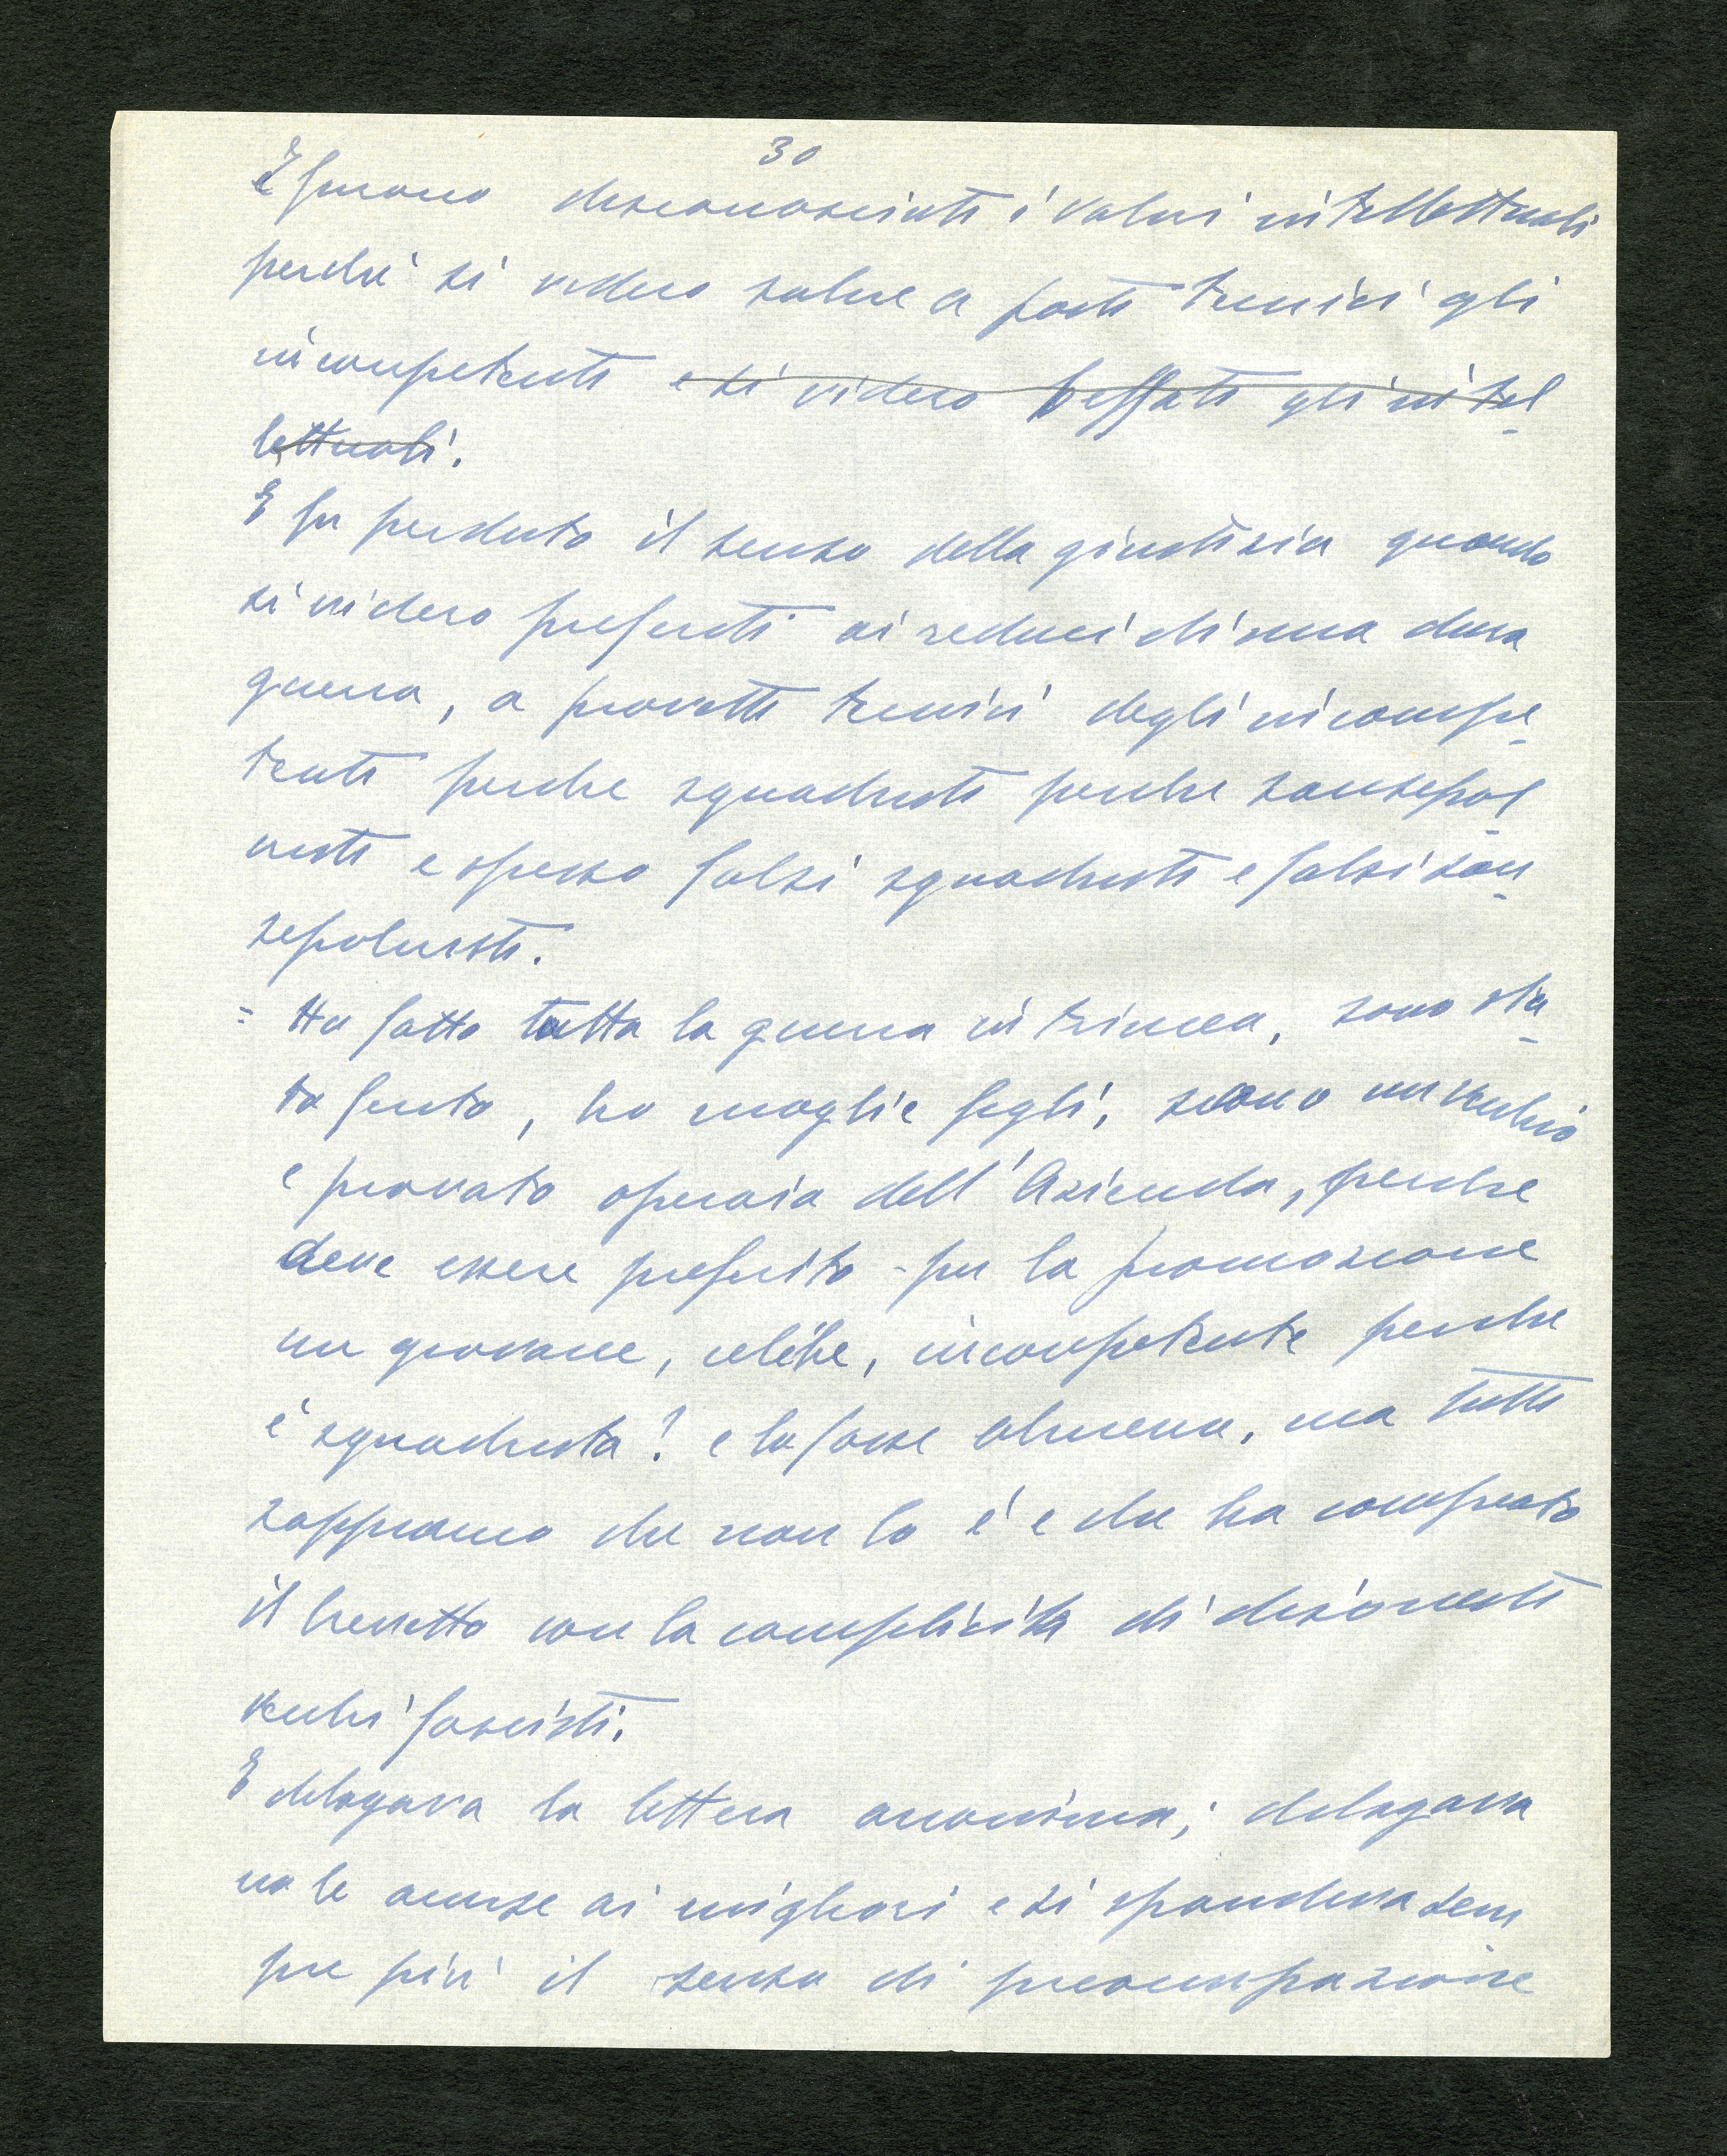 30
E furono disconosciuti i valori intellettuali
perché si videro salire a posti tecnici gli
incompetenti e si videro beffati gli intel
lettuali.
E fu perduto il senso della giustizia quando
si videro preferiti ai reduci di una dura
guerra, a provetti tecnici degli incompe
tenti perche squadristi perche sansepol
cristi e spesso falsi squadristi e falsi san
sepolcristi.
= Ho fatto tutta la guerra in trincea, sono sta
to ferito, ho moglie figli, sono un vecchio
e provato operaio dell'Azienda, perche
deve essere preferito - per la promozione
un giovane, celibe, incompetente perche
è squadrista? e lo fosse almeno, ma tutti
sappiamo che non lo é e che ha comprato
il brevetto con la complicità di disonesti
vecchi fascisti.
E dilagava la lettera anonima; dilagava
no le accuse ai migliori e si spandeva sem
pre più il senso di preoccupazione